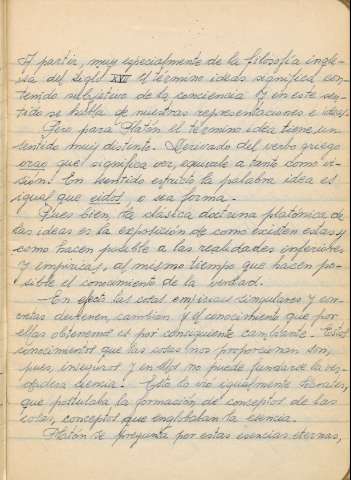 A partir, muy especialmente de la filosofía ingle-
sa del siglo XVII el término ideas significa con-
tenido subjetivo de la conciencia y en este sen-
tido se habla de nuestras representaciones e ideas.
Pero para Platón el término idea tiene un
sentido muy distinto. Derivado del verbo griego
que significa ver, equivale a tanto como vi-
sión. En sentido estricto la palabra idea es
igual que eidos, o sea forma.
Pues bien, la clásica doctrina platónica de
las ideas es la exposición de como existen estas y
como hacen posible a las realidades inferiores
y empíricas, al mismo tiempo que hacen po-
sible el conocimiento de la verdad.
En efecto las cosas empíricas singulares y con-
cretas devienen, cambian y el conocimiento que por
ellas obtenemos es por consiguiente cambiante. Estos
conocimientos que las cosas nos proporcionan son,
pues, inseguros y en ellos no puede fundarse la ver-
dadera ciencia. Esto lo vio igualmente Sócrates,
que postulaba la formación de conceptos de las
cosas, conceptos que englobaban la esencia.
Platón se pregunta por estas esencias eternas,